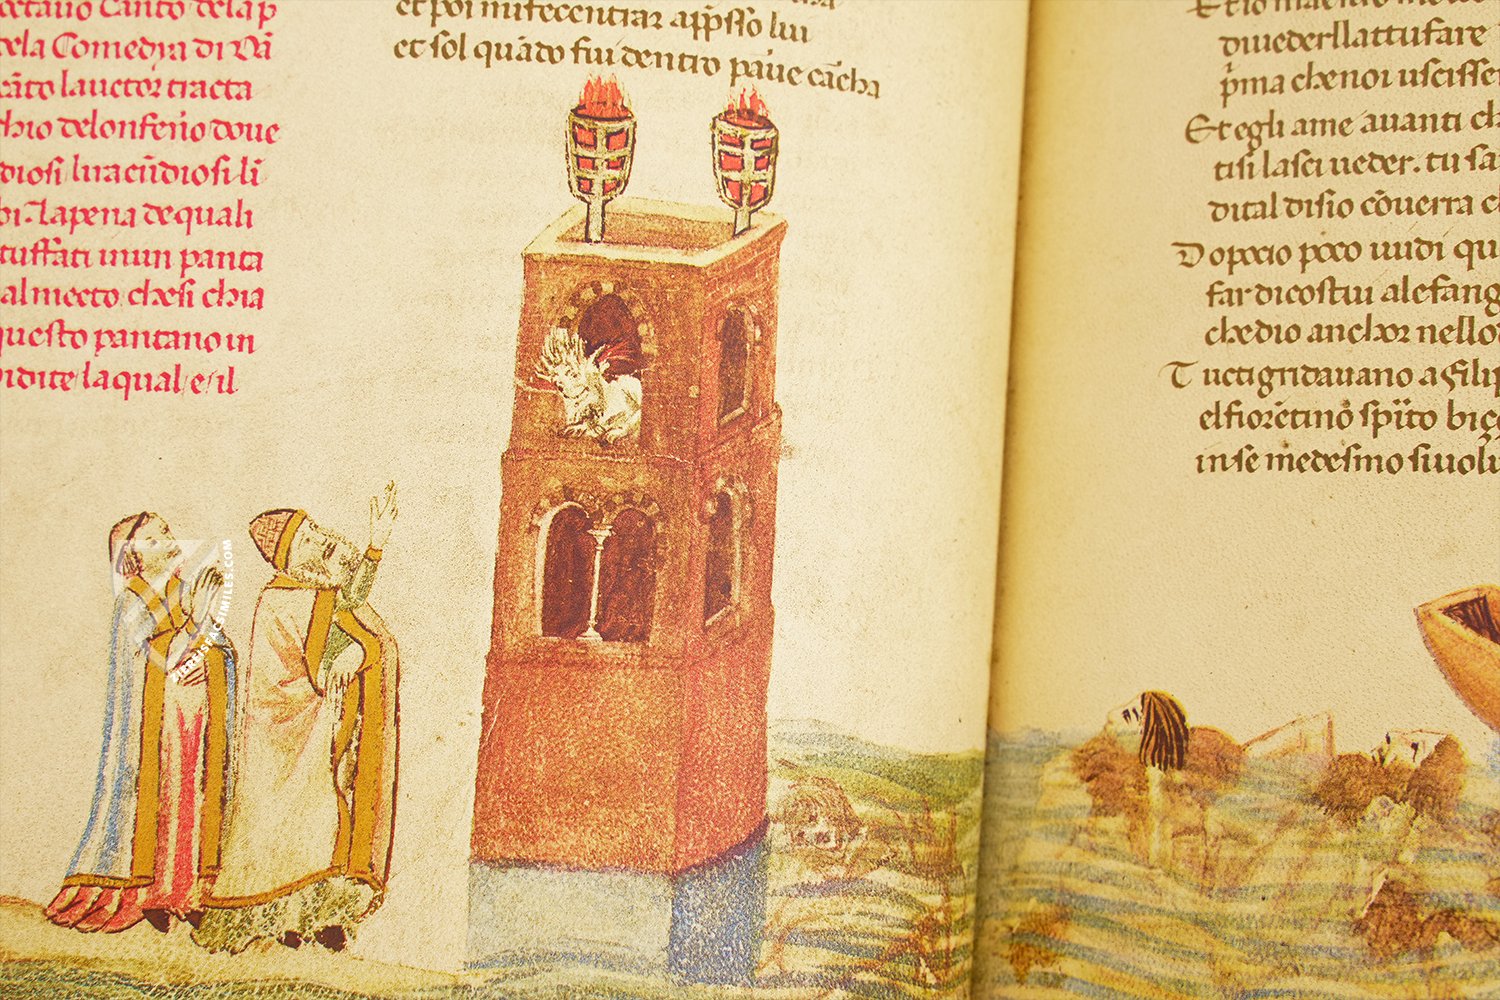 cetauo Canto dela p
dela Comedia di Dā
cāto lauctor tracta
chio delonferño doue
diosi luracūdiosi li
bi. lapena dequali
tuffati inun panta
almecto chesi chia
questo pantano in
la qual e il
et sol quādo fui dentro paue cācha
Et io maestro
di ueder llattufare
pma che noi uscisse
Et egli ame auanti ch
ti si lasci ueder. tu sa
di tal disio cōuerra
Dopo cio poco uudi qu
far di costui ale fang
che dio anchor nello
Tucti gridauano a filip
el fiorētino spito biç
in se medesmo si uol
ZIEREISFACSIMILES.COM